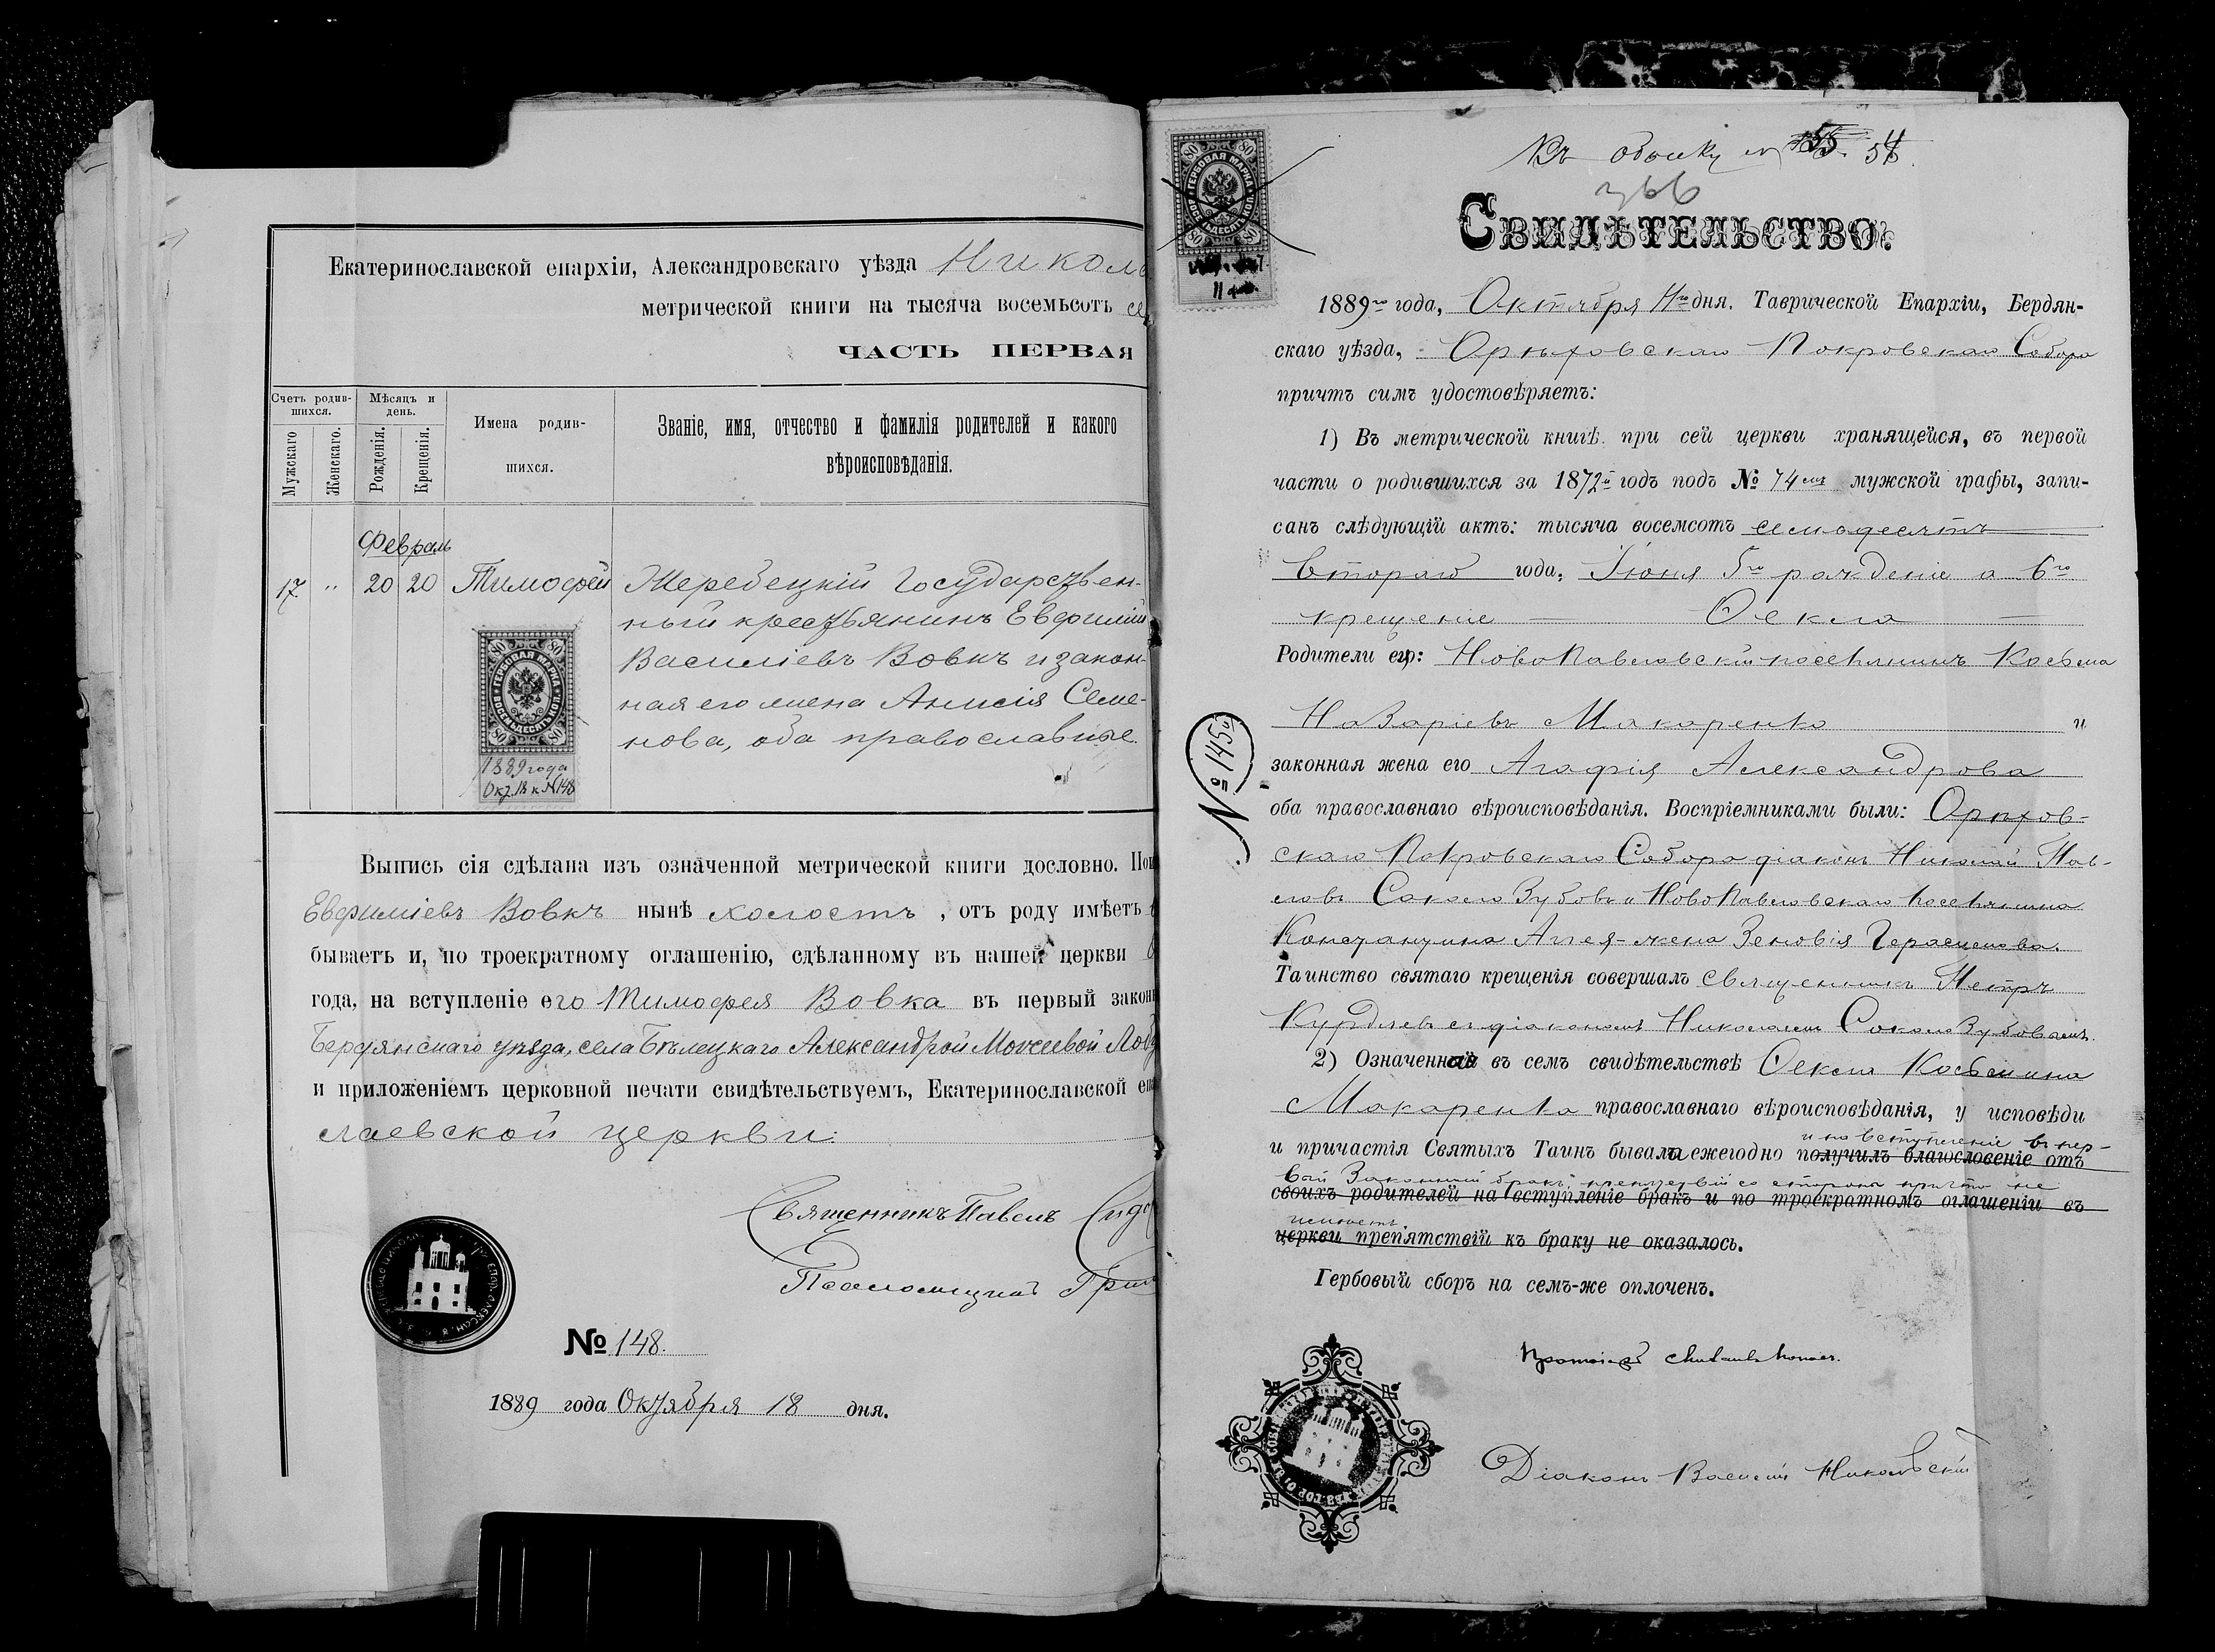 Екатеринославской епархіи, Александровскаго уѣзда Никола
метрической книги на тысяча восемьсотъ се
ЧАСТЬ ПЕРВАЯ
Счетъ родив-
шихся.
Мужскаго
Женскаго.
Мѣсяцъ и
день.
Рожденія.
Крещенія.
Имена родив-
шихся.
Званіе, имя, отчество и фамилія родителей и какого
вѣроисповѣданія.
Февраль
17 " 20 20 Тимофей Жеребецкій Государствен-
ный крестьянинъ Евфимій
Василіевъ Вовкъ и закон-
ная его жена Анисія Семе-
нова, оба православные.
80 ГЕРБОВАЯ МАРКА 80
80 ВОСЕМЬДЕСЯТЪ КОП. 80
1889 года
Окт. 18 к №148
Выпись сія сдѣлана изъ означенной метрической книги дословно. При
Евфиміевъ Вовкъ нынѣ холостъ, отъ роду имѣетъ
бываетъ и, по троекратному оглашенію, сдѣланному въ нашей церкви
года, на вступленіе его Тимофея Вовка въ первый закон
Бердянскаго уѣзда, села Бѣлецкаго Александрой Моисеевой Лоб
и приложеніемъ церковной печати свидѣтельствуемъ, Екатеринославской еп
лаевской церкви.
Священникъ Павелъ Сидо
Псаломщикъ Гри
№ 148.
1889 года Октября 18 дня.
Къ обыску № 54
366
СВИДѢТЕЛЬСТВО.
80 ГЕРБОВАЯ МАРКА 80
80 ВОСЕМЬДЕСЯТЪ КОП. 80
1889го года, Октября 11го дня. Таврической Епархіи, Бердян-
скаго уѣзда, Орѣховскаго Покровскаго Собора
причтъ симъ удостовѣряетъ:
1) Въ метрической книгѣ при сей церкви хранящейся, въ первой
части о родившихся за 1872й годъ подъ № 74емъ мужской графы, запи-
санъ слѣдующій актъ: тысяча восемсотъ семьдесятъ
втораго года, Іюня 5го рожденіе а 6го
крещеніе — Ѳекла —
Родители ея: НовоПавловскій поселянинъ Косьма
Назаріевъ Макаренко и
законная жена его Агафія Александрова
оба православнаго вѣроисповѣданія. Воспріемниками были: Орѣхов-
скаго Покровскаго Собора діаконъ Николай Пав-
ловъ СоколоЗубовъ и НовоПавловскаго поселянина
Константина жена Зеновія Герасимова.
Таинство святаго крещенія совершалъ священникъ Петръ
Курдлевъ съ діакономъ Николаемъ СоколоЗубовымъ.
№ 145й
2) Означенная въ семъ свидѣтельствѣ Ѳекла Косьмина
Макаренко православнаго вѣроисповѣданія, у исповѣди
и на вступленіе въ пер-
и причастія Святыхъ Таинъ бывала ежегодно получилъ благословеніе отъ
вый Законный бракъ препятствій со стороны причта не
своихъ родителей на вступленіе бракъ и по троекратномъ оглашеніи въ
церкви препятствій къ браку не оказалось.
Гербовый сборъ на семъ-же оплоченъ.
Протоіерей
Діаконъ Василій Никольскій